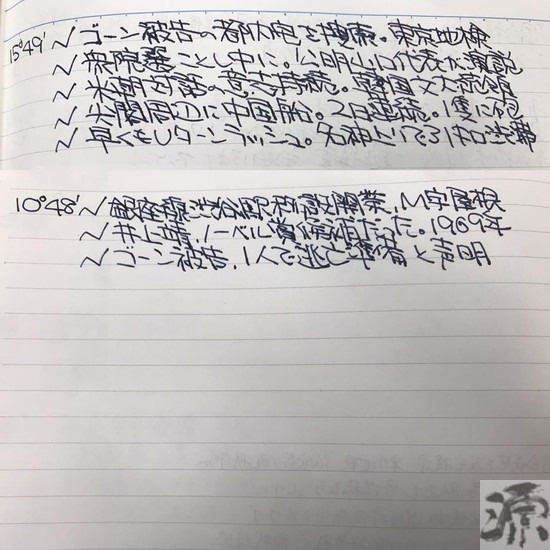 15°49' ✓ゴーン被告の都内宅を捜索。東京地検
✓衆院選ことし中に。公明山口代表が演説
✓米朝対話の意志持続。韓国文大統領
✓尖閣周辺に中国船。2日連続。1隻に砲
✓早くもUターンラッシュ。名神上り
10°48' ✓銀座線渋谷駅新設開業、M字屋根
✓井上靖、ノーベル賞候補だった。1969年
✓ゴーン被告、1人で逃亡準備と声明
源